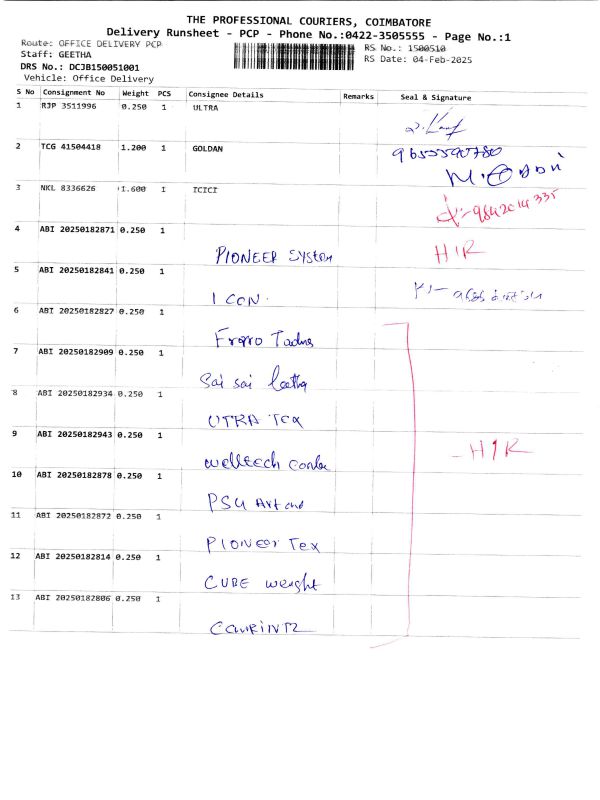 THE PROFESSIONAL COURIERS, COIMBATORE
Delivery Runsheet - PCP - Phone No.:0422-3505555 - Page No.:1
Route: OFFICE DELIVERY PCP
RS No.: 1500510
Staff: GEETHA
RS Date: 04-Feb-2025
DRS No.: DC3B150051001
Vehicle: Office Delivery
S No Consignment No Weight PCS Consignee Details Remarks Seal & Signature
1 RJP 3511996 0.250 1 ULTRA
2 TCG 41504418 1.200 1 GOLDAN
9655590780
3 NKL 8336626 1.600 1 ICICI
9842014335
4 ABI 20250182871 0.250 1
PIONEER System H1R
5 ABI 20250182841 0.250 1
ICON.
6 ABI 20250182827 0.250 1
7 ABI 20250182909 0.250 1
Sai sai
8 ABI 20250182934 0.250 1
UTRA Tex
9 ABI 20250182943 0.250 1
welltech - H1R
10 ABI 20250182878 0.250 1
PSG Art and
11 ABI 20250182872 0.250 1
PIONEER Tex
12 ABI 20250182814 0.250 1
CUBE weight
13 ABI 20250182806 0.250 1